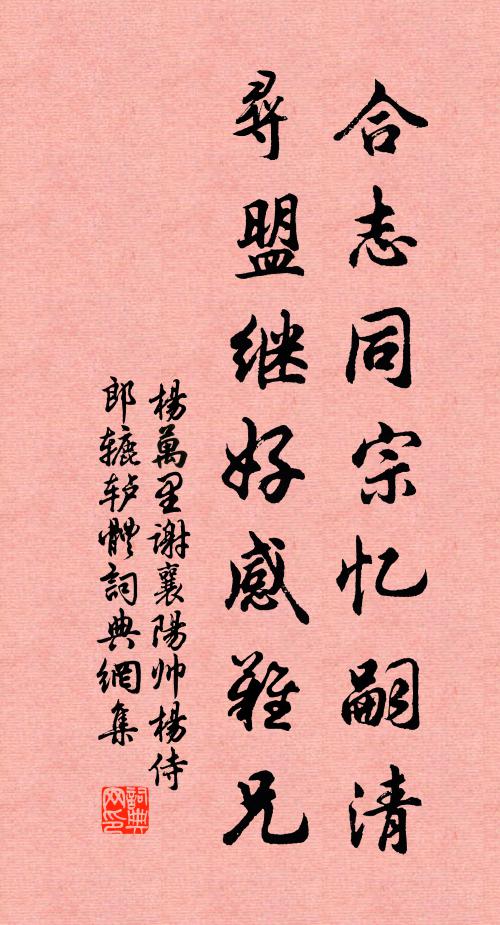 合志同宗忆嗣清
尋盟继好感難兄
楊萬里谢襄陽帅楊侍
郎辘轳體詞典網集
詞典网印